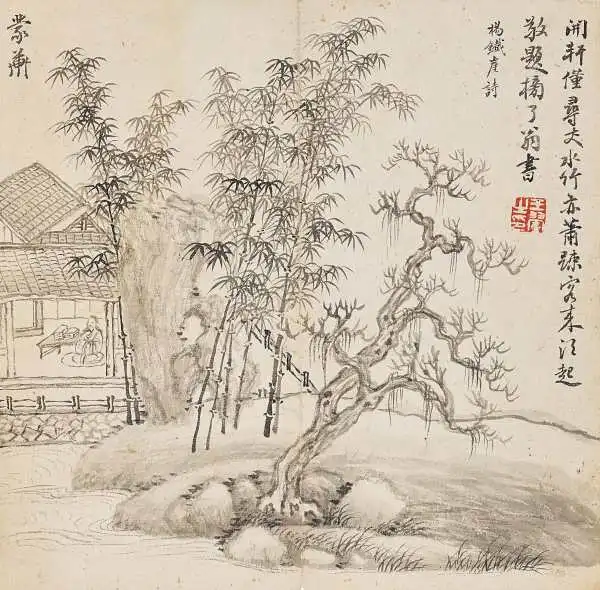 開軒僅尋丈水竹亦蕭疎客來須起
敬題榜了翁書
楊鐵崖詩
蒙齋